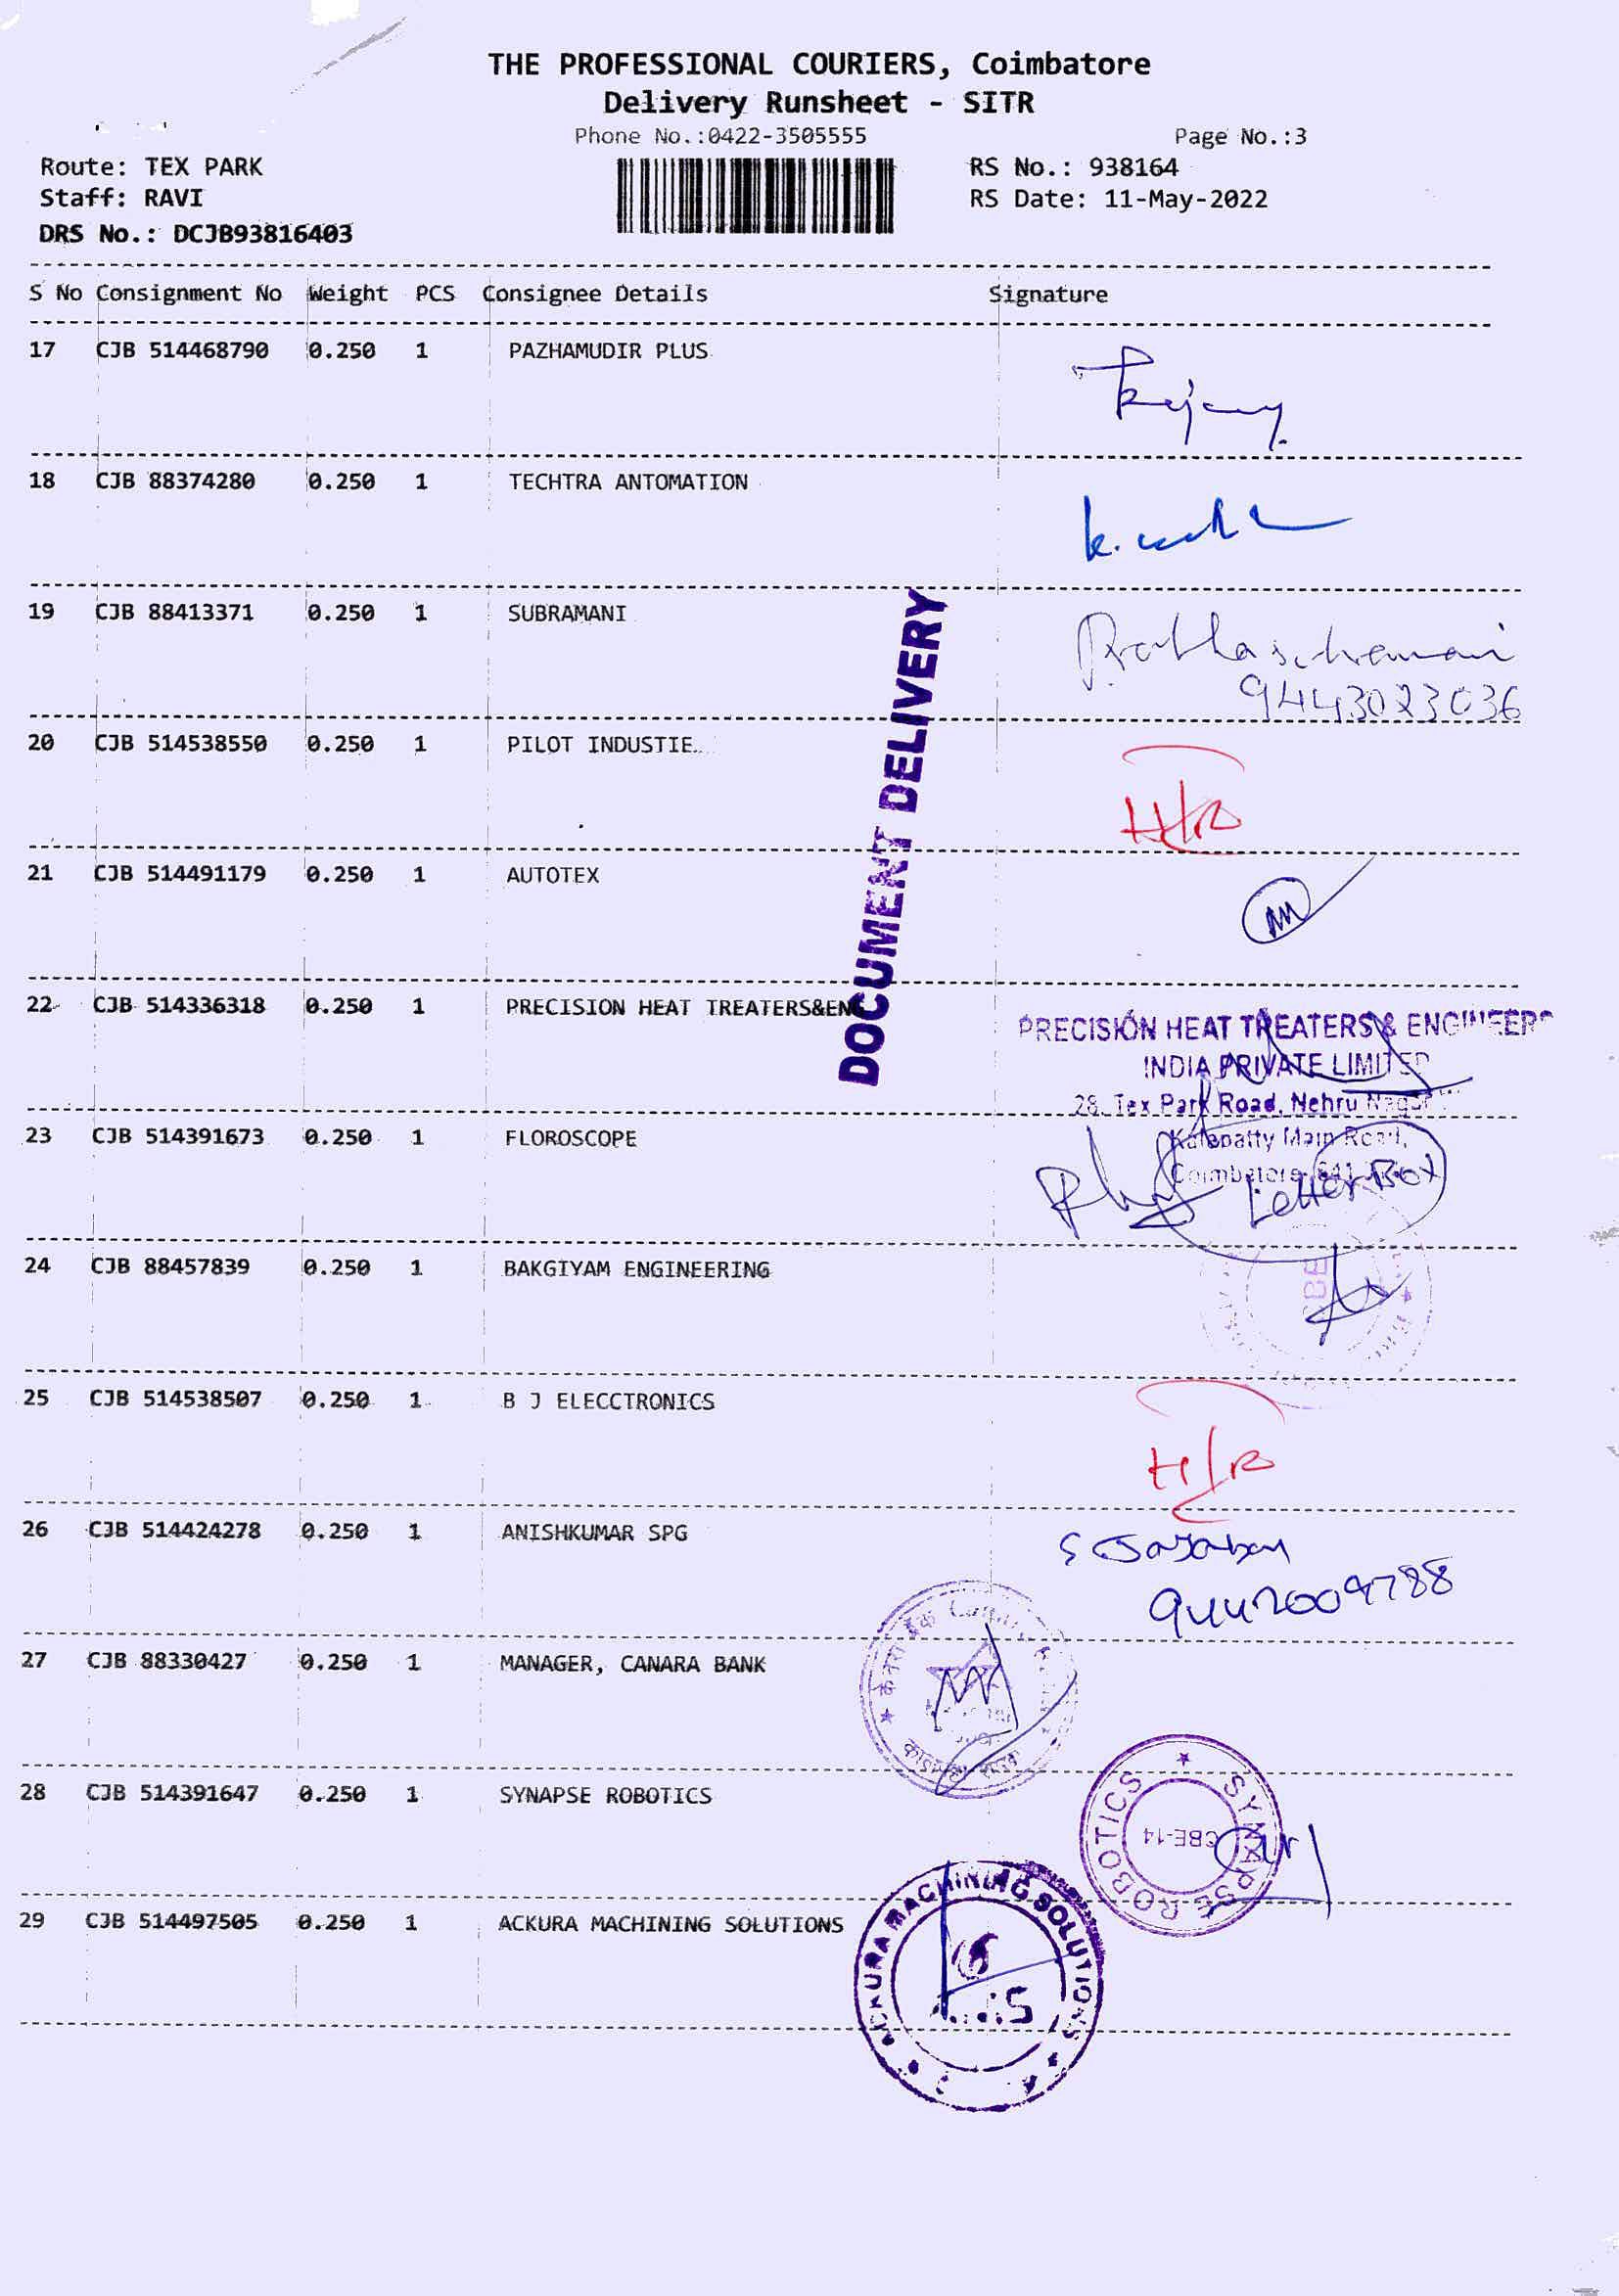 THE PROFESSIONAL COURIERS, Coimbatore
Delivery Runsheet - SITR
Phone No.:0422-3505555 Page No.:3
Route: TEX PARK RS No.: 938164
Staff: RAVI RS Date: 11-May-2022
DRS No.: DCJB93816403
S No Consignment No Weight PCS Consignee Details Signature
17 CJB 514468790 0.250 1 PAZHAMUDIR PLUS
18 CJB 88374280 0.250 1 TECHTRA ANTOMATION
19 CJB 88413371 0.250 1 SUBRAMANI
9443023036
20 CJB 514538550 0.250 1 PILOT INDUSTIE..
21 CJB 514491179 0.250 1 AUTOTEX
DOCUMENT DELIVERY
22 CJB 514336318 0.250 1 PRECISION HEAT TREATERS&ENG
PRECISION HEAT TREATERS & ENGINEERS
INDIA PRIVATE LIMITED
28, Tex Park Road, Nehru Nagar
23 CJB 514391673 0.250 1 FLOROSCOPE
Kalapatty Main Road,
Coimbatore-641
Letter Box
24 CJB 88457839 0.250 1 BAKGIYAM ENGINEERING
CBE
25 CJB 514538507 0.250 1 B J ELECCTRONICS
26 CJB 514424278 0.250 1 ANISHKUMAR SPG
9442009788
27 CJB 88330427 0.250 1 MANAGER, CANARA BANK
केनरा बैंक
28 CJB 514391647 0.250 1 SYNAPSE ROBOTICS
SYNAPSE ROBOTICS
CBE-14
29 CJB 514497505 0.250 1 ACKURA MACHINING SOLUTIONS
ACKURA MACHINING SOLUTIONS